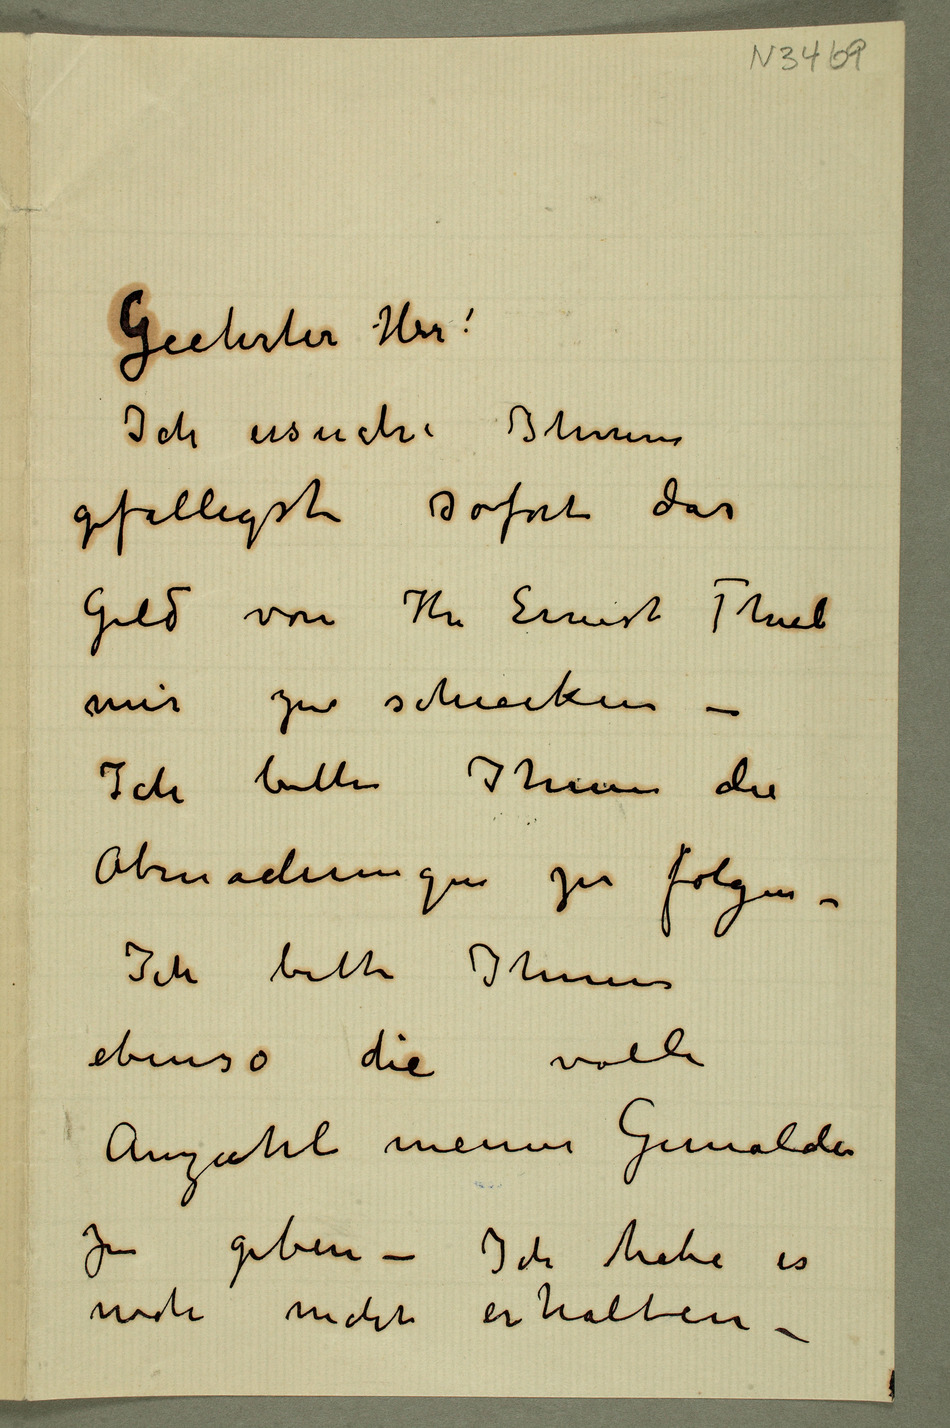 N3469
Geehrter Herr!
Ich ersuche Ihnen
gefalligst sofort das
Geld von Hr Ernest Thiel
mir zu schiecken –
Ich bitte Ihnen die
Abmachungen zu folgen –
Ich bitte Ihnen
ebenso die volle
Anzahl meiner Gemalder
zu geben – Ich habe es
noch nicht erhalten –